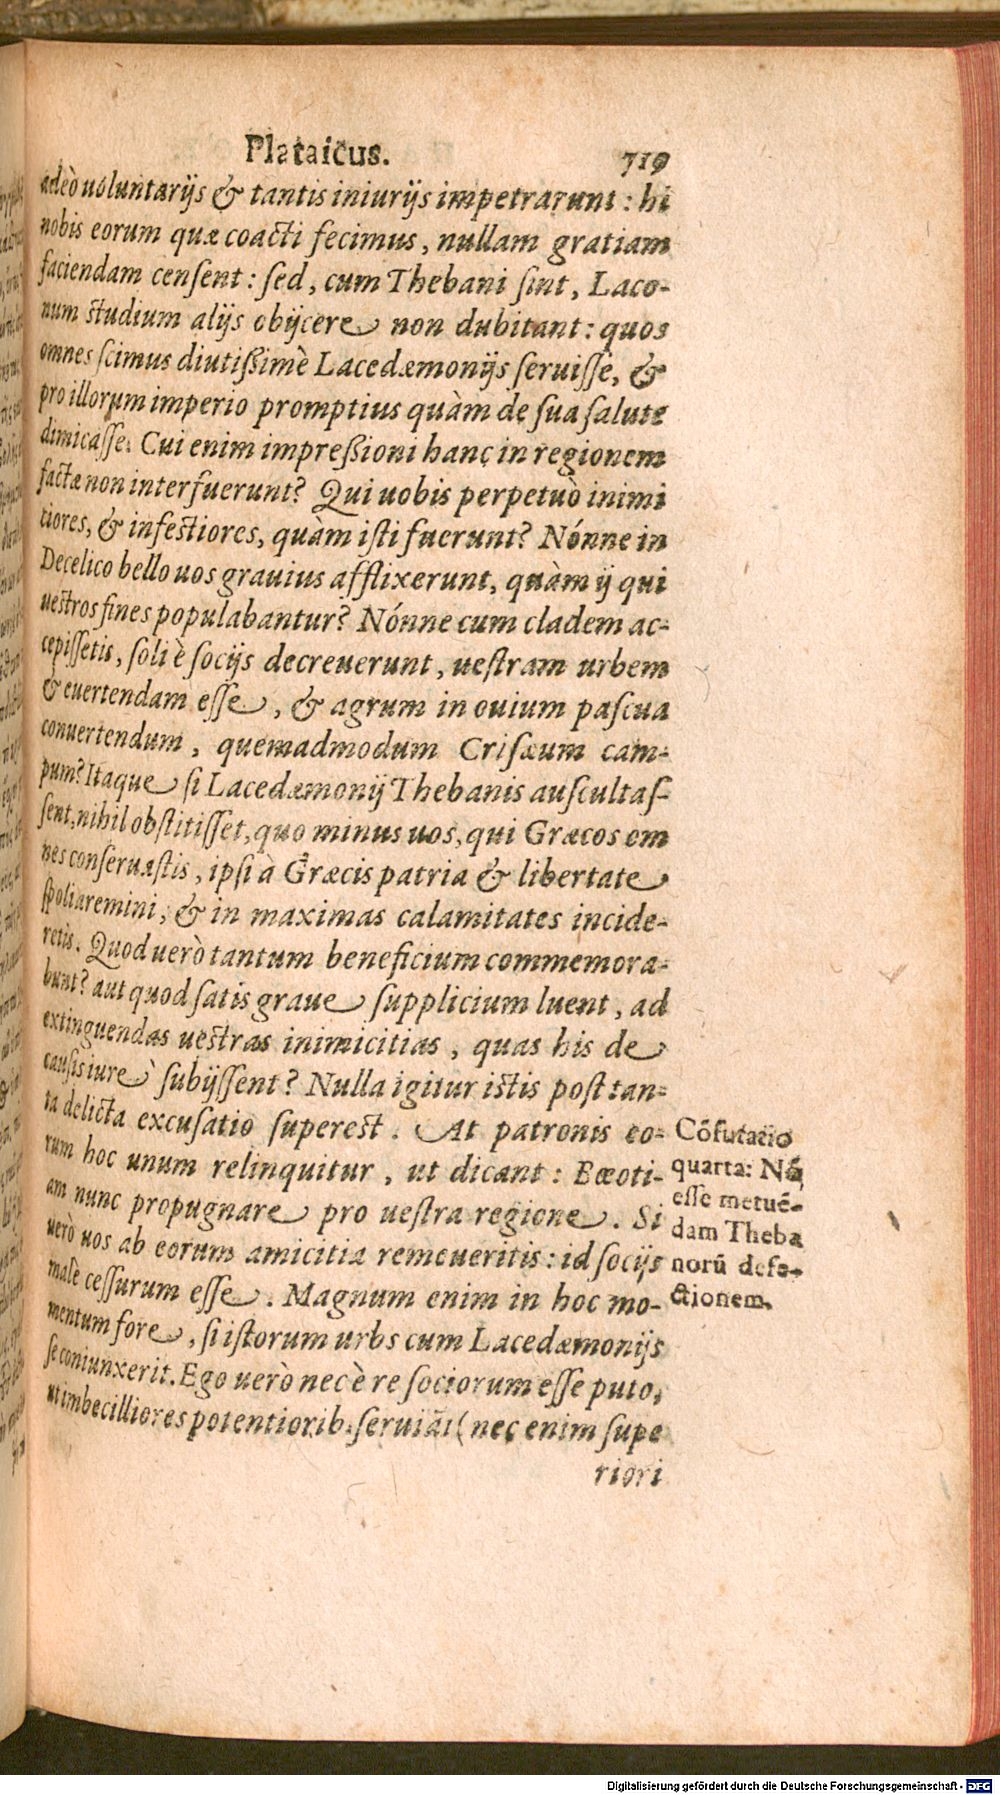 Plataicus. 719
adeò uoluntarijs & tantis iniurijs impetrarunt: hi
nobis eorum quæ coacti fecimus, nullam gratiam
faciendam censent: sed, cum Thebani sint, Laco-
num studium alijs obijcere non dubitant: quos
omnes scimus diutißimè Lacedæmonijs seruisse, &
pro illorum imperio promptius quàm de sua salute
dimicasse. Cui enim impreßioni hanc in regionem
factæ non interfuerunt? Qui uobis perpetuò inimi
tiores, & infestiores, quàm isti fuerunt? Nónne in
Decelico bello uos grauius afflixerunt, quàm ij qui
uestros fines populabantur? Nónne cum cladem ac-
cepissetis, soli è socijs decreuerunt, uestram urbem
& euertendam esse, & agrum in ouium pascua
conuertendum, quemadmodum Crisæum cam-
pum? Itaque si Lacedæmonij Thebanis auscultas-
sent, nihil obstitisset, quo minus uos, qui Græcos om
nes conseruastis, ipsi à Græcis patria & libertate
spoliaremini, & in maximas calamitates incide-
retis. Quod uerò tantum beneficium commemora-
bunt? aut quod satis graue supplicium luent, ad
extinguendas uestras inimicitias, quas his de
causis iure subijssent? Nulla igitur istis post tan-
ta delicta excusatio superest. At patronis eo-
rum hoc unum relinquitur, ut dicant: Bœoti-
am nunc propugnare pro uestra regione. Si
uerò uos ab eorum amicitia remoueritis: id socijs
malè cessurum esse. Magnum enim in hoc mo-
mentum fore, si istorum urbs cum Lacedæmonijs
se coniunxerit. Ego uerò nec è re sociorum esse puto,
ut imbecilliores potentiorib. seruiãt (nec enim supe
riori
Cõfutatio
quarta: Nõ
esse metuẽ-
dam Theba
norũ defe-
ctionem.
Digitalisierung gefördert durch die Deutsche Forschungsgemeinschaft - DFG